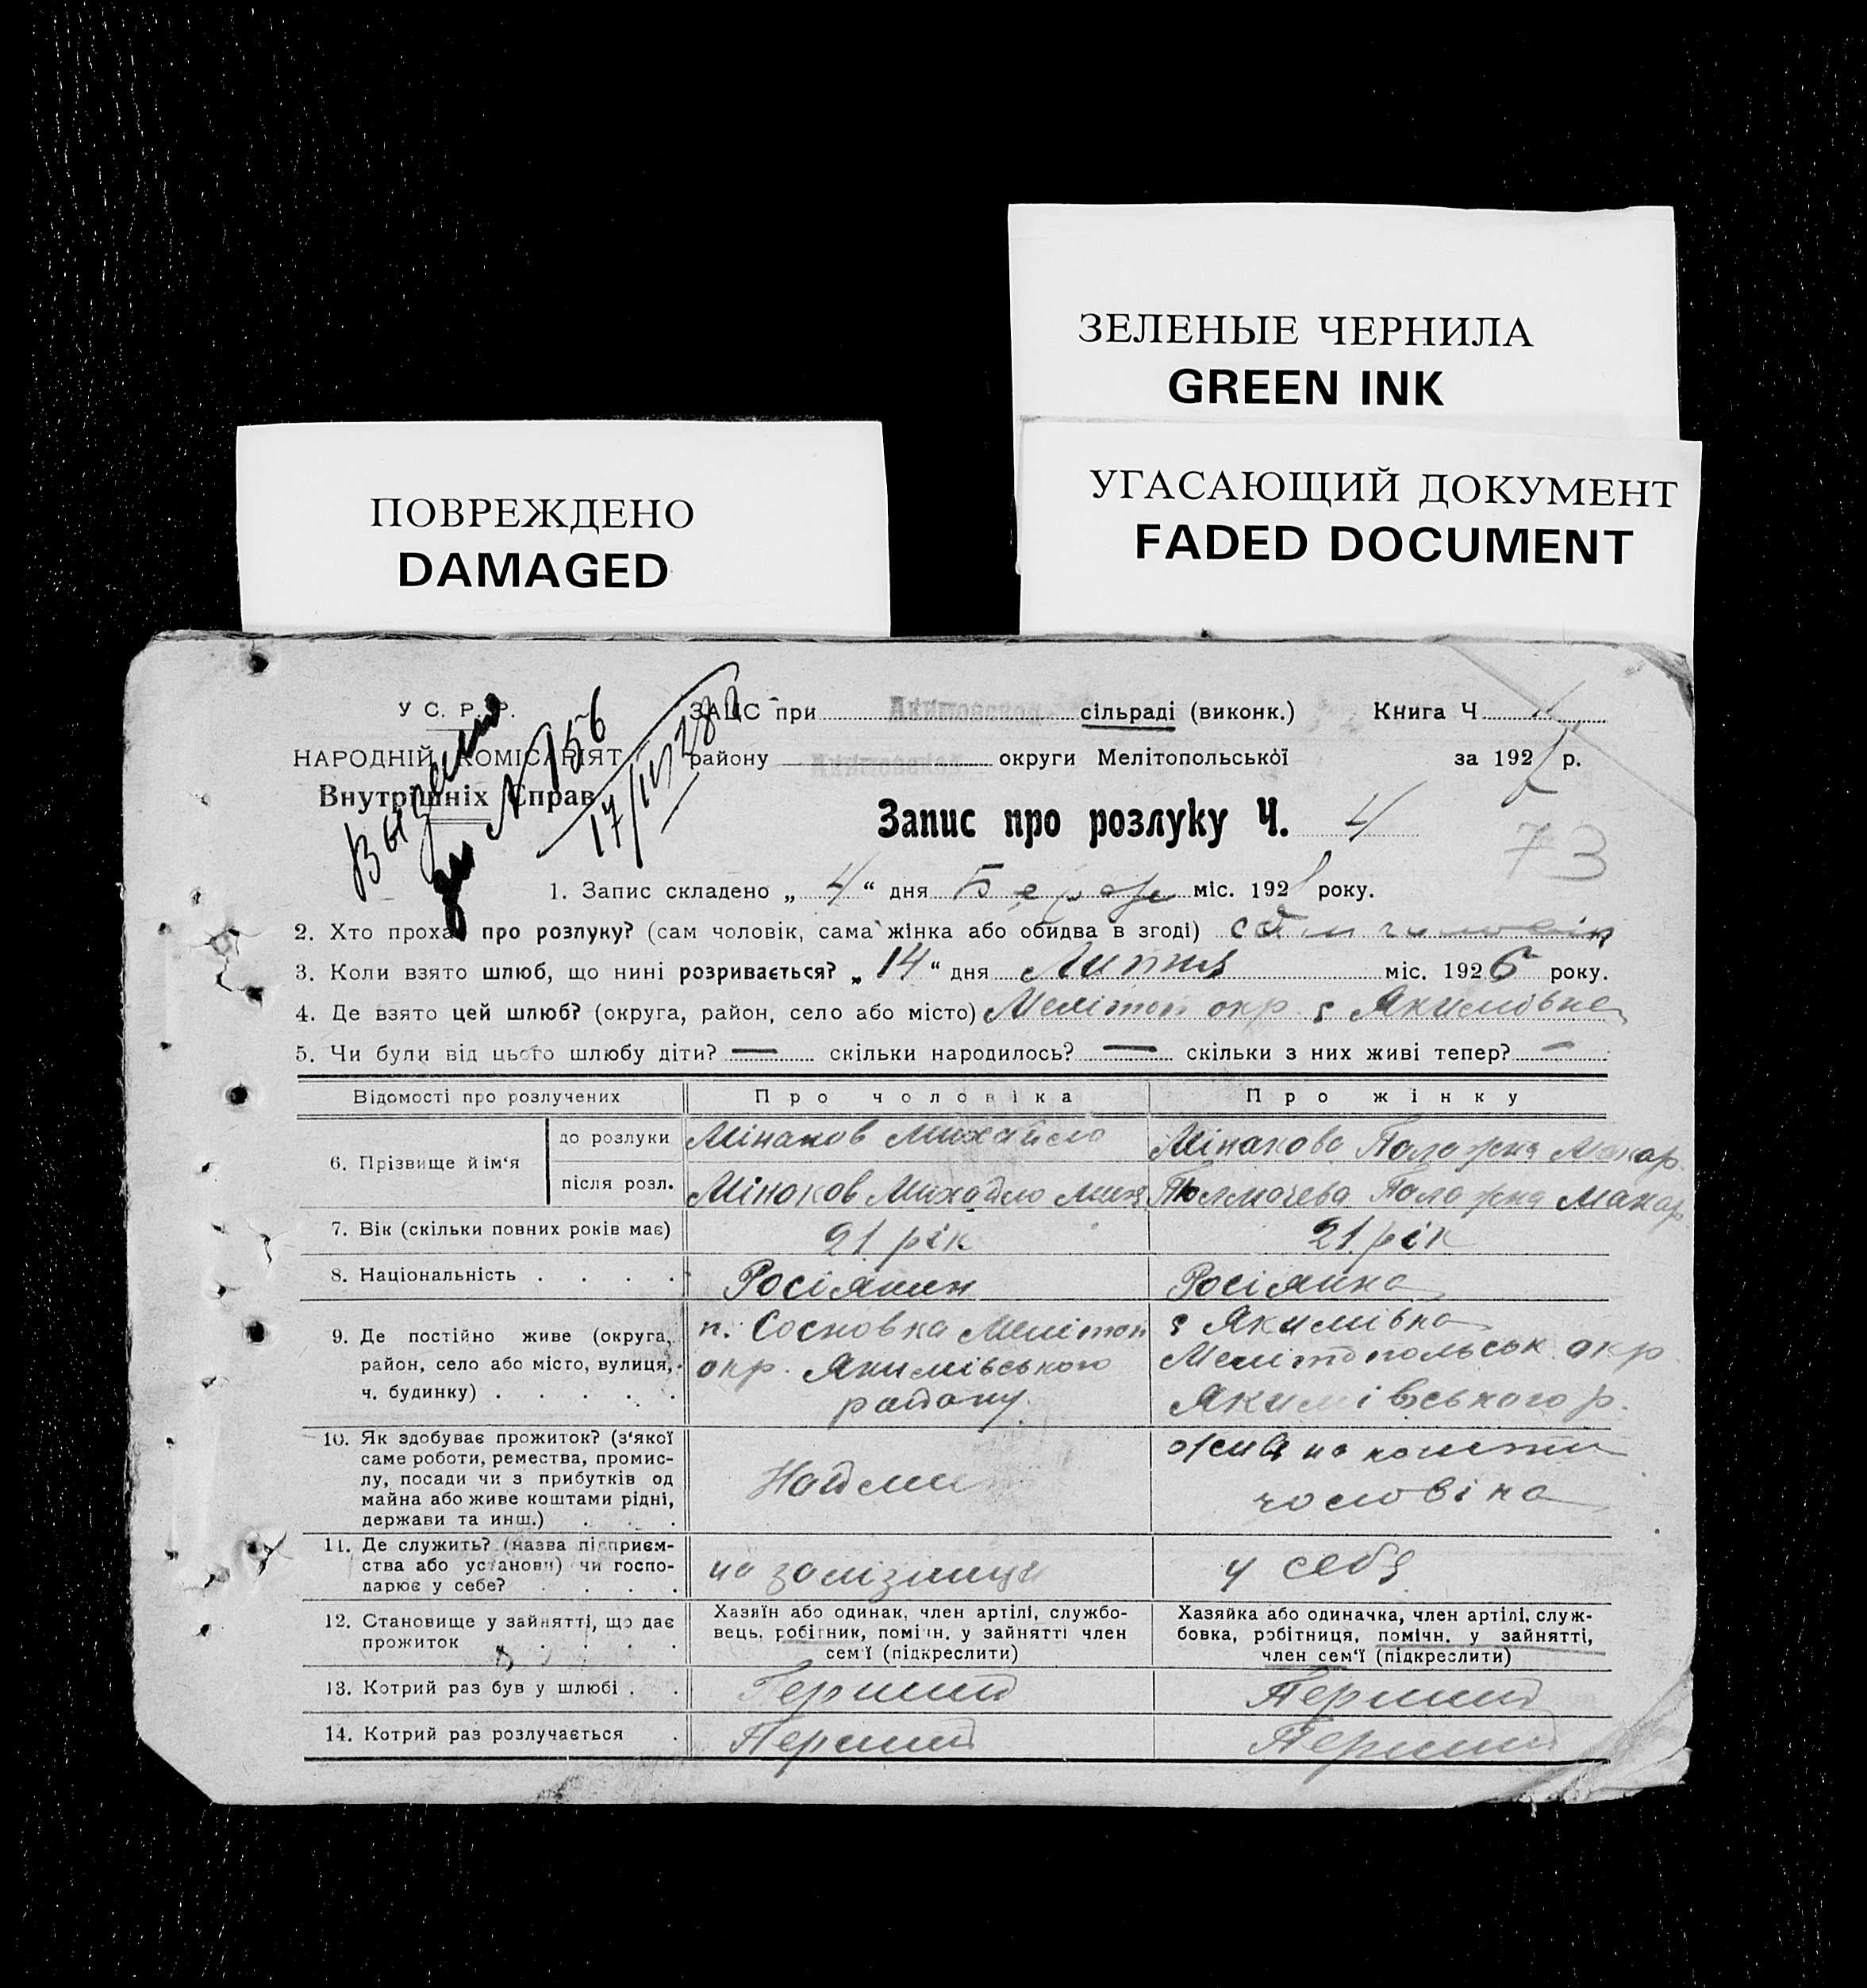 ЗЕЛЕНЫЕ ЧЕРНИЛА
GREEN INK
УГАСАЮЩИЙ ДОКУМЕНТ
FADED DOCUMENT
ПОВРЕЖДЕНО
DAMAGED
У С. Р. Р.
НАРОДНІЙ КОМІСАРІЯТ
Внутрішніх Справ
за № 156
17/III 28
ЗАЦС при Акимовской сільраді (виконк.) Книга Ч
району округи Мелітопольської за 192 р.
Запис про розлуку Ч. 4
73
1. Запис складено „ 4 “ дня міс. 1928 року.
2. Хто прохає про розлуку? (сам чоловік, сама жінка або обидва в згоді) сам чоловік
3. Коли взято шлюб, що нині розривається? „ 14 “ дня Липня міс. 1926 року.
4. Де взято цей шлюб? (округа, район, село або місто) Мелітоп окр. с Якимівка
5. Чи були від цього шлюбу діти? — скільки народилось? — скільки з них живі тепер? —
Відомості про розлучених
Про чоловіка
Про жінку
6. Прізвище й ім‘я
до розлуки
Мінаков Михайло
Мінакова Палажка Макар.
після розл.
Мінаков Михайло Мих
Палажка Макар
7. Вік (скільки повних років має)
21 рік
21 рік
8. Національність . . . .
Росіянин
Росіянка
9. Де постійно живе (округа, район, село або місто, вулиця, ч. будинку) . . . . .
п. Сосновка Мелітоп
окр. Якимівського
району
с Якимівка
Мелітопольськ окр
Якимівського р.
10. Як здобуває прожиток? (з‘якої саме роботи, ремества, промислу, посади чи з прибутків од майна або живе коштами рідні, держави та инш.) . . .
Найми
жила на кошти
чоловіка
11. Де служить? (назва підприємства або установи) чи господарює у себе? . . . .
на залізниці
у себя
12. Становище у зайнятті, що дає прожиток . . . .
Хазяїн або одинак, член артілі, службовець, робітник, помічн. у зайнятті член сем‘ї (підкреслити)
Хазяйка або одиначка, член артілі, службовка, робітниця, помічн. у зайнятті, член сем‘ї (підкреслити)
13. Котрий раз був у шлюбі . .
Перший
Перший
14. Котрий раз розлучається .
Перший
Перший